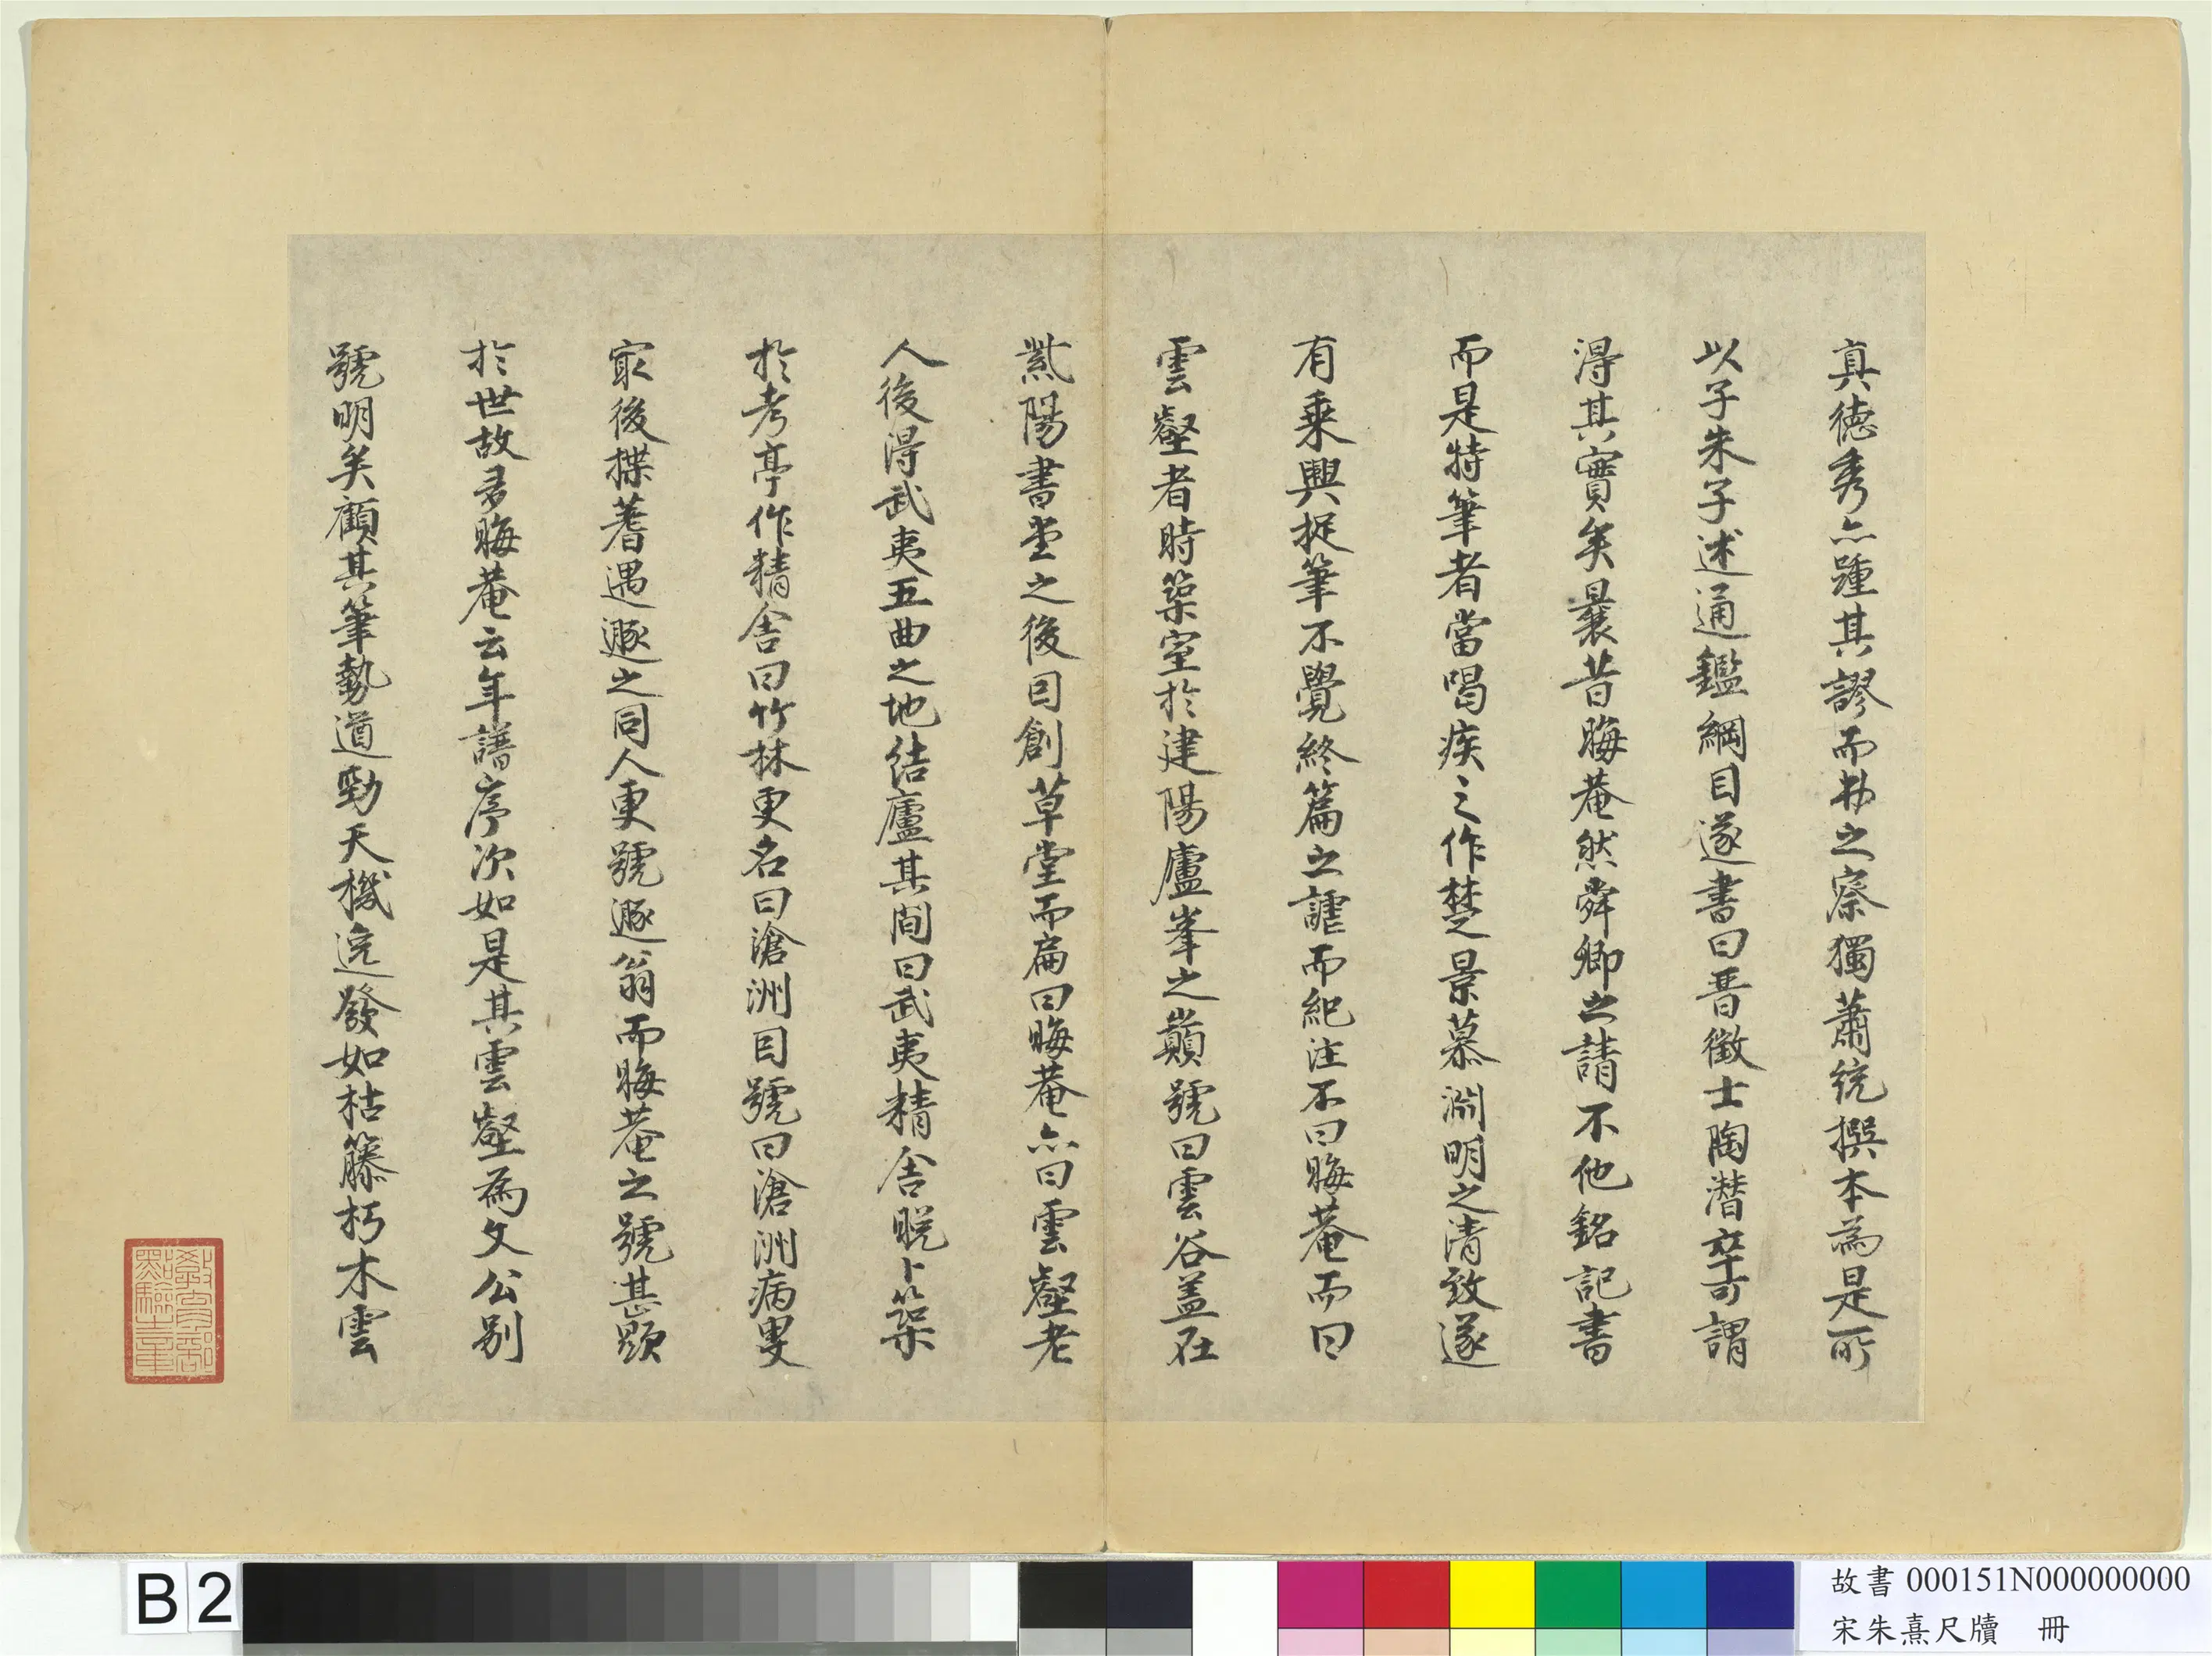 真德秀亦踵其謬而弗之察獨蕭統撰本為是所
以子朱子述通鑑綱目遂書曰晉徵士陶潛卒可謂
得其實矣曩昔晦菴然舜卿之請不他銘記書
而是特筆者當暍疾之作楚景慕淵明之清致遂
有乘興捉筆不覺終篇之謔而紀注不曰晦菴而曰
雲壑者時築室於建陽廬峯之巔號曰雲谷蓋在
紫陽書堂之後因創草堂而扁曰晦菴亦曰雲壑老
人後得武夷五曲之地結廬其間曰武夷精舍晚卜築
於考亭作精舍曰竹林更名曰滄洲因號曰滄洲病叟
最後揲蓍遇遯之同人更號遯翁而晦菴之號甚顯
於世故多晦菴云年譜序次如是其雲壑為文公別
號明矣顧其筆勢遒勁天機迅發如枯籐朽木雲
教育部點驗之章
B2
故書 000151N000000000
宋朱熹尺牘 冊